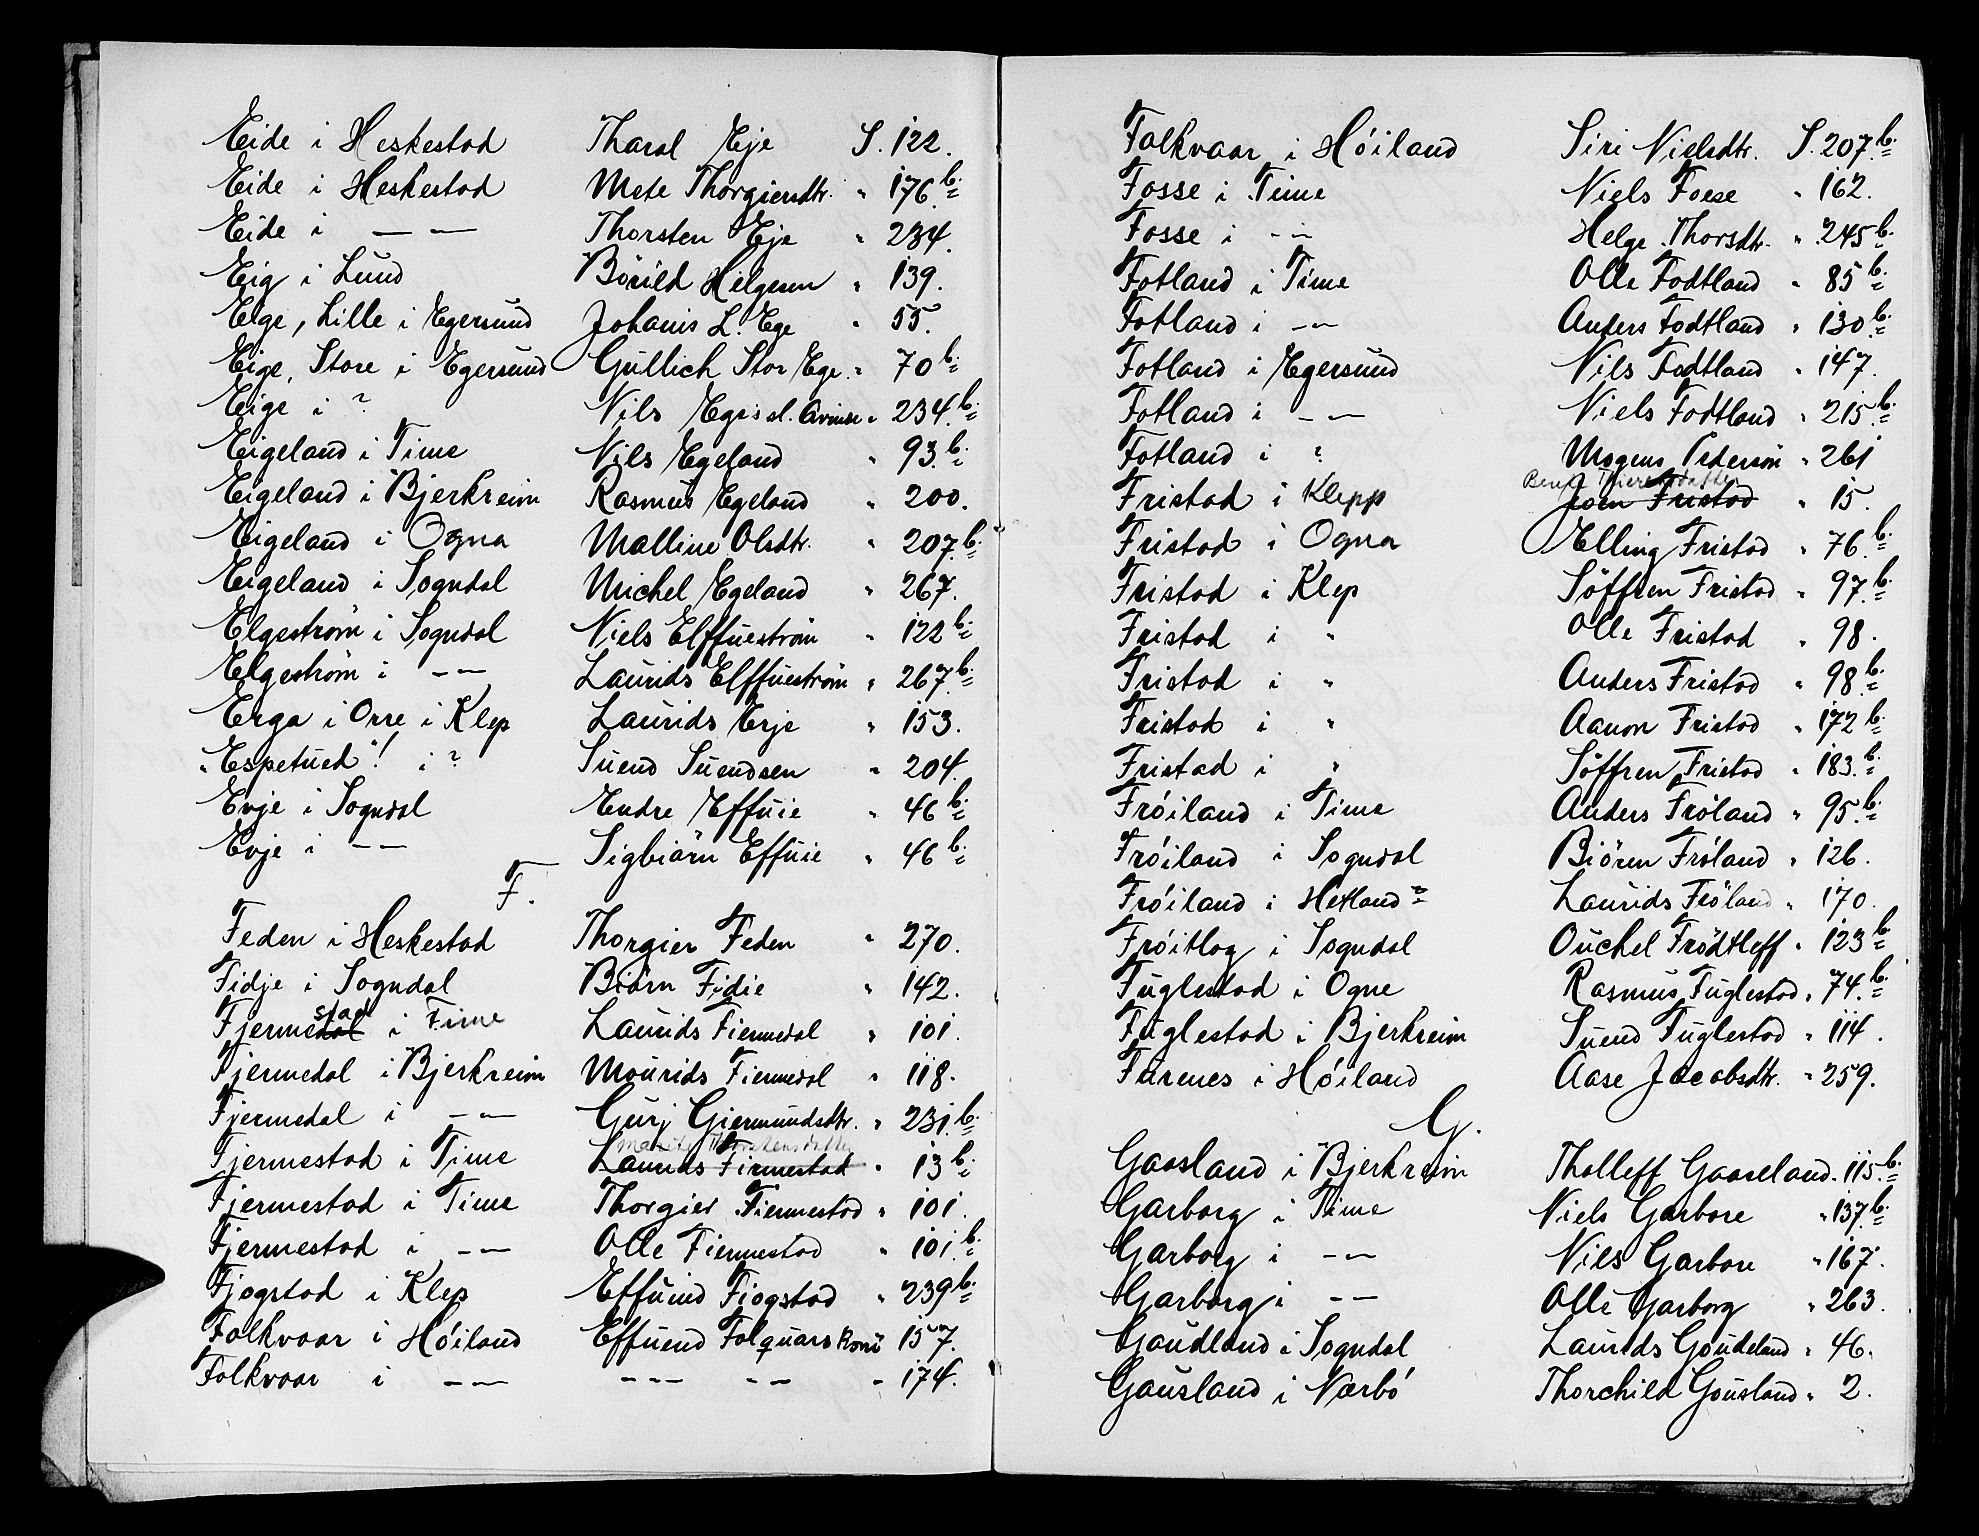 Eide i Heskestad Tharal Eje S. 122.
Eide i Heskestad Mete Thorgiersdtr. " 176.b.
Eide i — — Thorsten Eje " 234.
Eig i Lund Börild Helgesen " 139.
Eige, Lille i Egersund Johanis L. Ege " 55.
Eige, Store i Egersund Gullich Stor Ege. " 70 b.
Eige i ? Nils Eges sl. " 234.b.
Eigeland i Time Nils Egeland " 93.b.
Eigeland i Bjerkreim Rasmus Egeland " 200.
Eigeland i Ogna Malline Olsdtr. " 207.b.
Eigeland i Sogndal Michel Egeland " 267.
Elgeström i Sogndal Niels Elffueström " 122 b.
Elgeström i — — Laurids Elffueström " 267.b.
Erga i Orre i Klep Laurids Erje " 153.
"Espetued"! i ? Suend Suendsen " 204.
Evje i Sogndal Endre Effuie " 46 b.
Evje i — — Sigbiörn Effuie " 46 b.
F.
Feden i Heskestad Thorgier Feden " 270.
Fidje i Sogndal Biörn Fidie " 142.
stad
Fjermedal i Time Laurids Fiermedal " 101.
Fjermedal i Bjerkreim Mourids Fiermedal " 118.
Fjermedal i — — Gurj Giermundsdtr. " 231.b.
Thorstensdatter
Fjermestad i Time Laurids Firmestad " 13 b.
Fjermestad i Time Thorgier Fiermestad " 101.
Fjermestad i — — Olle Fiermestad " 101.b.
Fjogstad i Klep Effuind Fiogstad " 239 b.
Folkvaar i Höiland Effuend Folquars 157.
Folkvaar i — — — — — — " 174.
Folkvaar i Höiland Siri Nielsdtr. S. 207.b.
Fosse i Time Niels Foese " 162.
Fosse i — — Helge Thorsdtr. " 245 b.
Fotland i Time Olle Fodtland " 85 b.
Fotland i — — Anders Fodtland " 130 b.
Fotland i Egersund Nils Fodtland " 147.
Fotland i — — Niels Fodtland " 215 b.
Fotland i ? Mogens Pedersön " 261
Fristad i Klepp Joen Fristad " 15.
Fristad i Ogna Elling Fristad " 76.b.
Fristad i Klep Söffren Fristad " 97.b.
Fristad i " Olle Fristad " 98.
Fristad i " Anders Fristad " 98.b.
Fristad i " Aanon Fristad " 172 b.
Fristad i " Söffren Fristad " 183.b.
Fröiland i Time Anders Fröland " 95.b.
Fröiland i Sogndal Biören Fröland " 126.
Fröiland i Hetland ? Laurids Fröland " 170.
Fröitlog i Sogndal Ouchel Frödtleff " 123 b.
Fuglestad i Ogne Rasmus Fuglestad " 74.b.
Fuglestad i Bjerkreim Suend Fuglestad " 114.
Furenes i Höiland Aase Jacobsdtr. " 259.
G.
Gaasland i Bjerkreim Tholleff Gaaseland " 115.b.
Garborg i Time Niels Garbore " 137.b.
Garborg i — — Niels Garbore " 167.
Garborg i — — Olle Garborg " 263.
Gaudland i Sogndal Laurids Goudeland " 46.
Gausland i Nærbö Thorchild Gousland " 2.